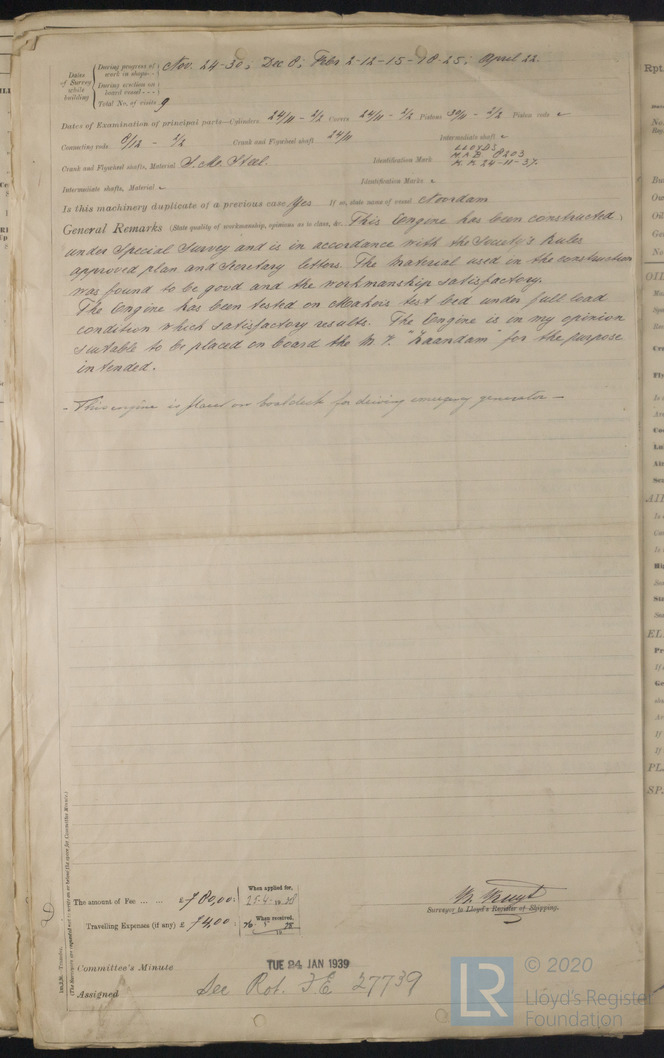 Dates of Survey while building
During progress of work in shops - - Nov. 24-30; Dec 8; Febr 2-12-15-18-25; April 22.
During erection on board vessel - - -
Total No. of visits 9
Dates of Examination of principal parts—Cylinders 24/11 - 2/2 Covers 24/11 - 2/2 Pistons 30/11 - 2/2 Piston rods
Connecting rods 8/12 - 2/2 Crank and Flywheel shaft 24/11 Intermediate shaft
Crank and Flywheel shafts, Material S.M. Steel. Identification Mark LLOYDS
M.A.B. 8203
K.K. 24-11-37.
Intermediate shafts, Material Identification Marks
Is this machinery duplicate of a previous case Yes If so, state name of vessel Noordam
General Remarks (State quality of workmanship, opinions as to class, &c. This Engine has been constructed
under Special Survey and is in accordance with the Society's Rules
approved plan and Secretary letters. The Material used in the construction
was found to be good and the workmanship satisfactory.
The Engine has been tested on Makers test bed under full load
condition which satisfactory results. The Engine is in my opinion
suitable to be placed on board the M.V. "Zaandam" for the purpose
intended.
- This engine is placed on boatdeck for driving emergency generator -
The amount of Fee ... ... £ 780,00: When applied for, 25.4.1938
Travelling Expenses (if any) £ 74,00: When received,
Surveyor to Lloyd's Register of Shipping.
Committee's Minute TUE 24 JAN 1939
Assigned See Rot. F.E. 27739
(The Surveyors are requested not to write on or below the space for Committee's Minute.)
LR © 2020
Lloyd's Register
Foundation
Rpt.